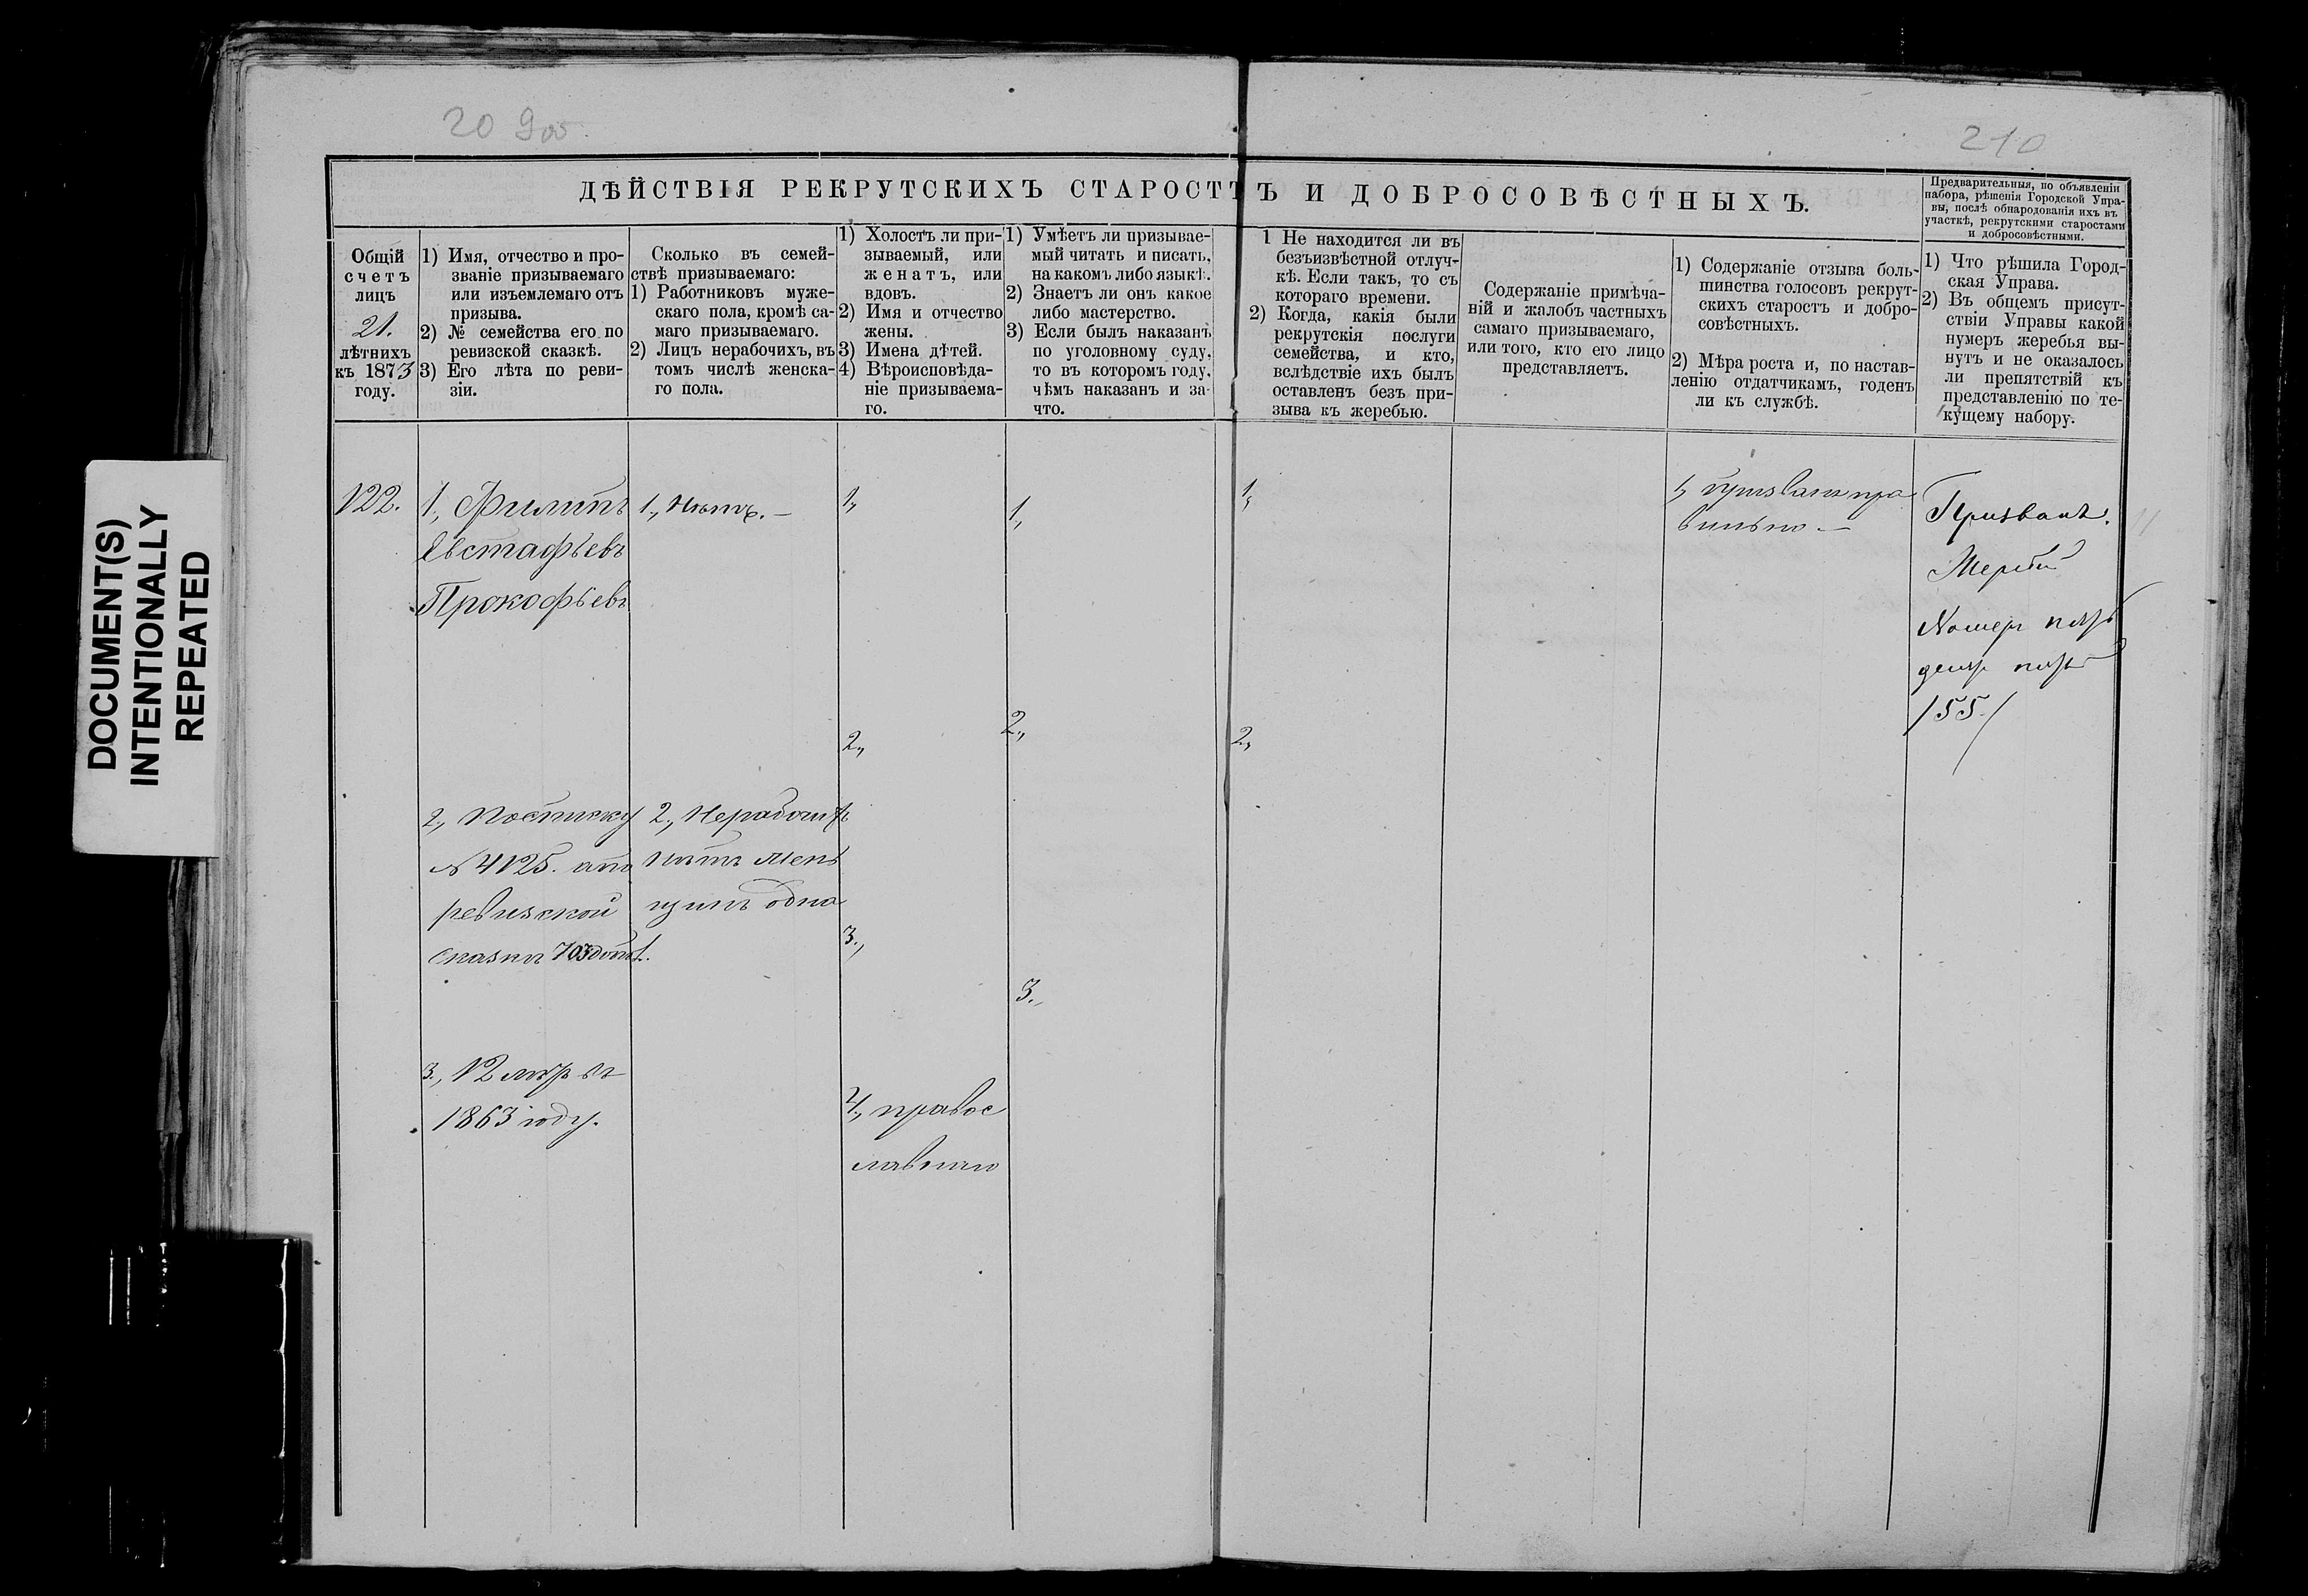 DOCUMENT(S)
INTENTIONALLY
REPEATED
20 9 об.
210
ДѢЙСТВІЯ РЕКРУТСКИХЪ СТАРОСТЪ И ДОБРОСОВѢСТНЫХЪ.
Предварительныя, по объявленіи
набора, рѣшенія Городской Упра-
вы, послѣ обнародованія ихъ въ
участкѣ, рекрутскими старостами
и добросовѣстными.
Общій
счетъ
лицъ
21.
лѣтнихъ
къ 1873
году.
1) Имя, отчество и про-
званіе призываемаго
или изъемлемаго отъ
призыва.
2) № семейства его по
ревизской сказкѣ.
3) Его лѣта по реви-
зіи.
Сколько въ семей-
ствѣ призываемаго:
1) Работниковъ муже-
скаго пола, кромѣ са-
маго призываемаго.
2) Лицъ нерабочихъ, въ
томъ числѣ женска-
го пола.
1) Холостъ ли при-
зываемый, или
женатъ, или
вдовъ.
2) Имя и отчество
жены.
3) Имена дѣтей.
4) Вѣроисповѣда-
ніе призываема-
го.
1) Умѣетъ ли призывае-
мый читать и писать,
на какомъ либо языкѣ.
2) Знаетъ ли онъ какое
либо мастерство.
3) Если былъ наказанъ
по уголовному суду,
то въ которомъ году,
чѣмъ наказанъ и за-
что.
1 Не находится ли въ
безъизвѣстной отлуч-
кѣ. Если такъ, то съ
котораго времени.
2) Когда, какія были
рекрутскія послуги
семейства, и кто,
вслѣдствіе ихъ былъ
оставленъ безъ при-
зыва къ жеребью.
Содержаніе примѣча-
ній и жалобъ частныхъ
самаго призываемаго,
или того, кто его лицо
представляетъ.
1) Содержаніе отзыва боль-
шинства голосовъ рекрут-
скихъ старостъ и добро-
совѣстныхъ.
2) Мѣра роста и, по настав-
ленію отдатчикамъ, годенъ
ли къ службѣ.
1) Что рѣшила Город-
ская Управа.
2) Въ общемъ присут-
ствіи Управы какой
нумеръ жеребья вы-
нутъ и не оказалось
ли препятствій къ
представленію по те-
кущему набору.
122.
1., Филипъ
Евстафьевъ
Прокофьевъ
2., По списку
№ 4125. а по
ревизской
сказкѣ 703
3., 12 лѣтъ въ
1863 году.
1., Нѣтъ. —
2., Нерабочихъ
нѣтъ жен
щинъ одна
1.
1,
2.,
3.,
4., правос
лавнаго
1,
2.,
3.,
1,
2.,
1, призванъ пра
вильно. —
Призванъ.
Жербій
Номеръ пять
десятъ пять
/55./